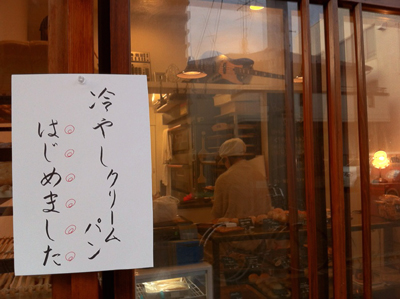 冷やしクリームパン
はじめました